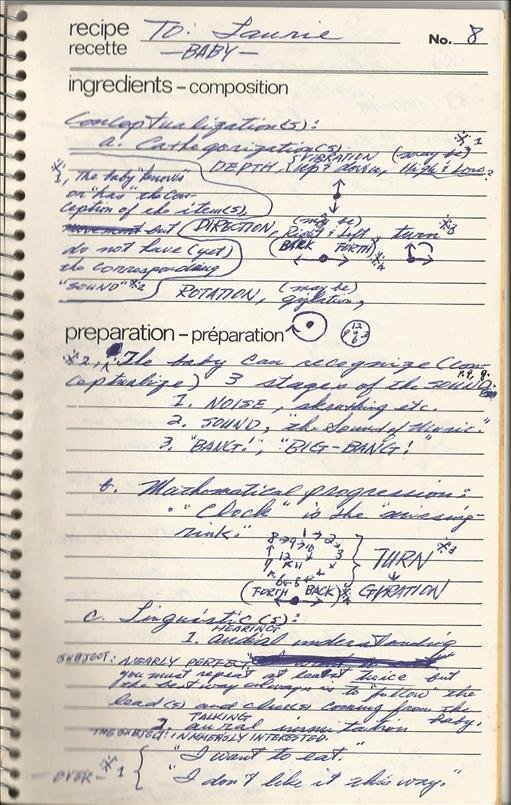 recipe To: Laurie
recette —BABY— No. 8
ingredients – composition
Conceptualization(s):
a. Cathegorization(s): *1
DEPTH, {VIBRATION up & down, (may be) High & Low?
*1, The baby "knows"
or "has" the con-
ception of the item(s),
but
do not have (yet)
the corresponding
"SOUND" *2
DIRECTION, (may be) Right & Left, turn *3
(BACK FORTH) *4
ROTATION, (may be) gyration,
preparation – préparation
12
9 3
6
*2, The baby can recognize (con-
ceptualize) 3 stages of the SOUND.
1. NOISE, etc.
2. SOUND, "the Sound of Music."
3. "BANG!", "BIG-BANG!"
b. Mathematical progression:
"Clock" is the "missing-
link."
TURN *3
GYRATION
(FORTH BACK) *4
c. Linguistic(s):
HEARING
1. audial understanding
SUBJECT: NEARLY PERFECT,
you must repeat at least twice but
(the best way always is to "follow" the
lead(s) and clues coming from the
baby.
TALKING
2. immitation
THE SUBJECT: IMMENSLY INTERESTED.
*1 { "I want to eat."
"I don't like it this way."
— OVER —